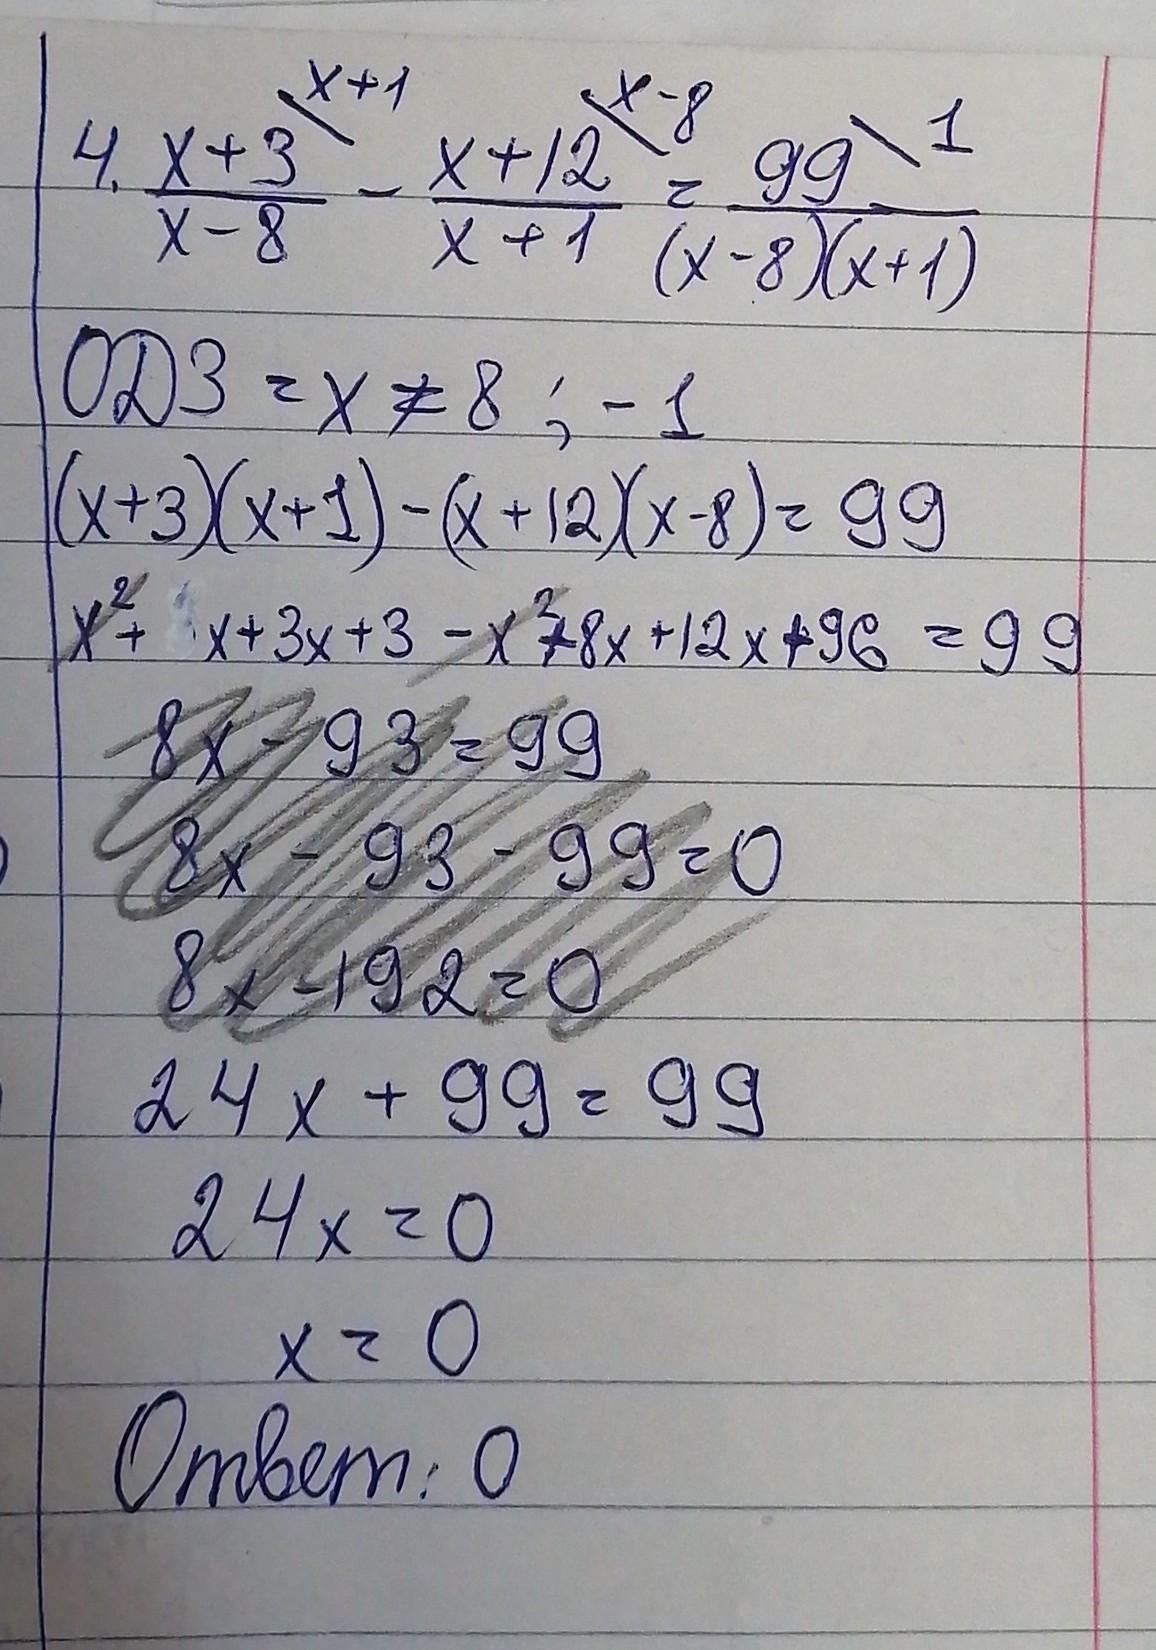 4. (x+3)/(x-8) \x+1 - (x+12)/(x+1) \x-8 = 99/((x-8)(x+1)) \1
ОДЗ = x ≠ 8 ; -1
(x+3)(x+1)-(x+12)(x-8)=99
x²+ x+3x+3 -x²+8x+12x+96 =99
8x-93=99
8x-93-99=0
8x-192=0
24x+99=99
24x=0
x=0
Ответ: 0